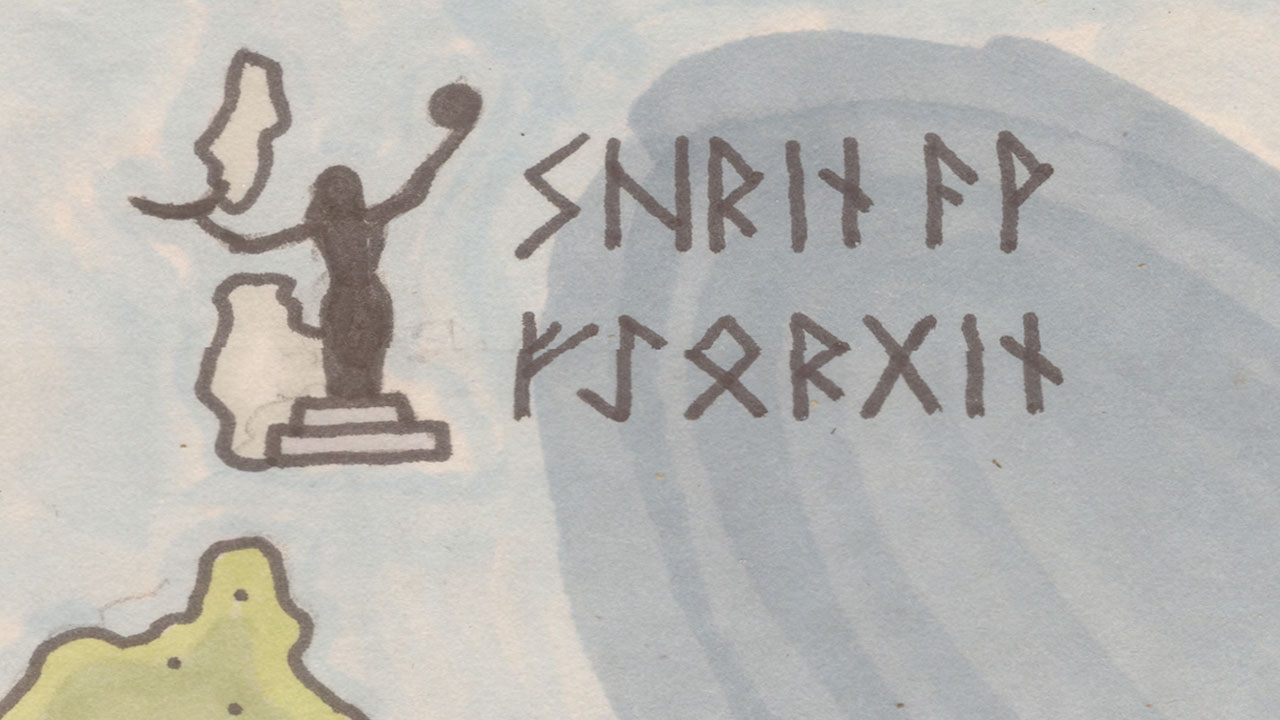 ᛊᚺᚱᛁᚾ ᚨᚹ
ᚠᛇᛟᚱᚷᛁᚾ